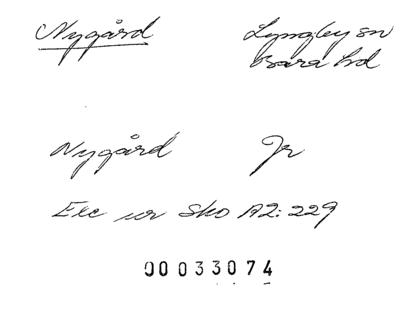 Nygård Lyngby sn
Bara hd
Nygård Jr
Exc ur Sko A2:229
00033074